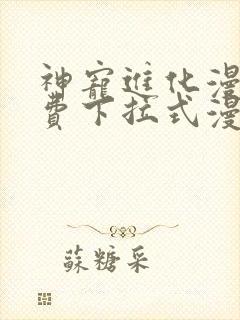 神寵進化漫
費下拉式漫
蘇糖采